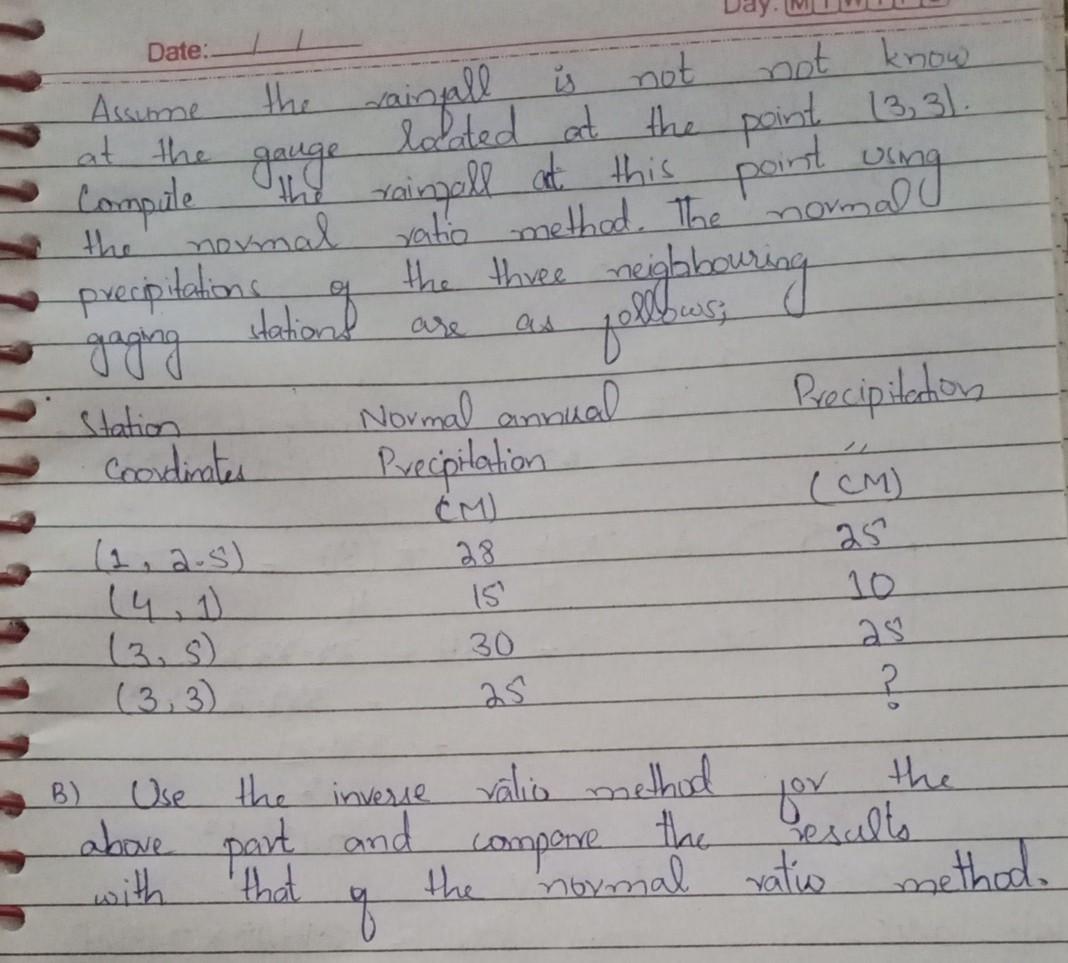 Day: M T W T F S
Date: / /
Assume the rainfall is not not know
at the gauge located at the point (3,3).
Compute the rainfall at this point using
the normal ratio method. The normal
precipitations of the three neighbouring
gaging stations are as follows;
Station Normal annual Precipitation
Coordinates Precipitation "
(CM) (CM)
(1, 2.5) 28 25
(4, 1) 15 10
(3, 5) 30 25
(3, 3) 25 ?
B) Use the inverse ratio method for the
above part and compare the results
with that of the normal ratio method.